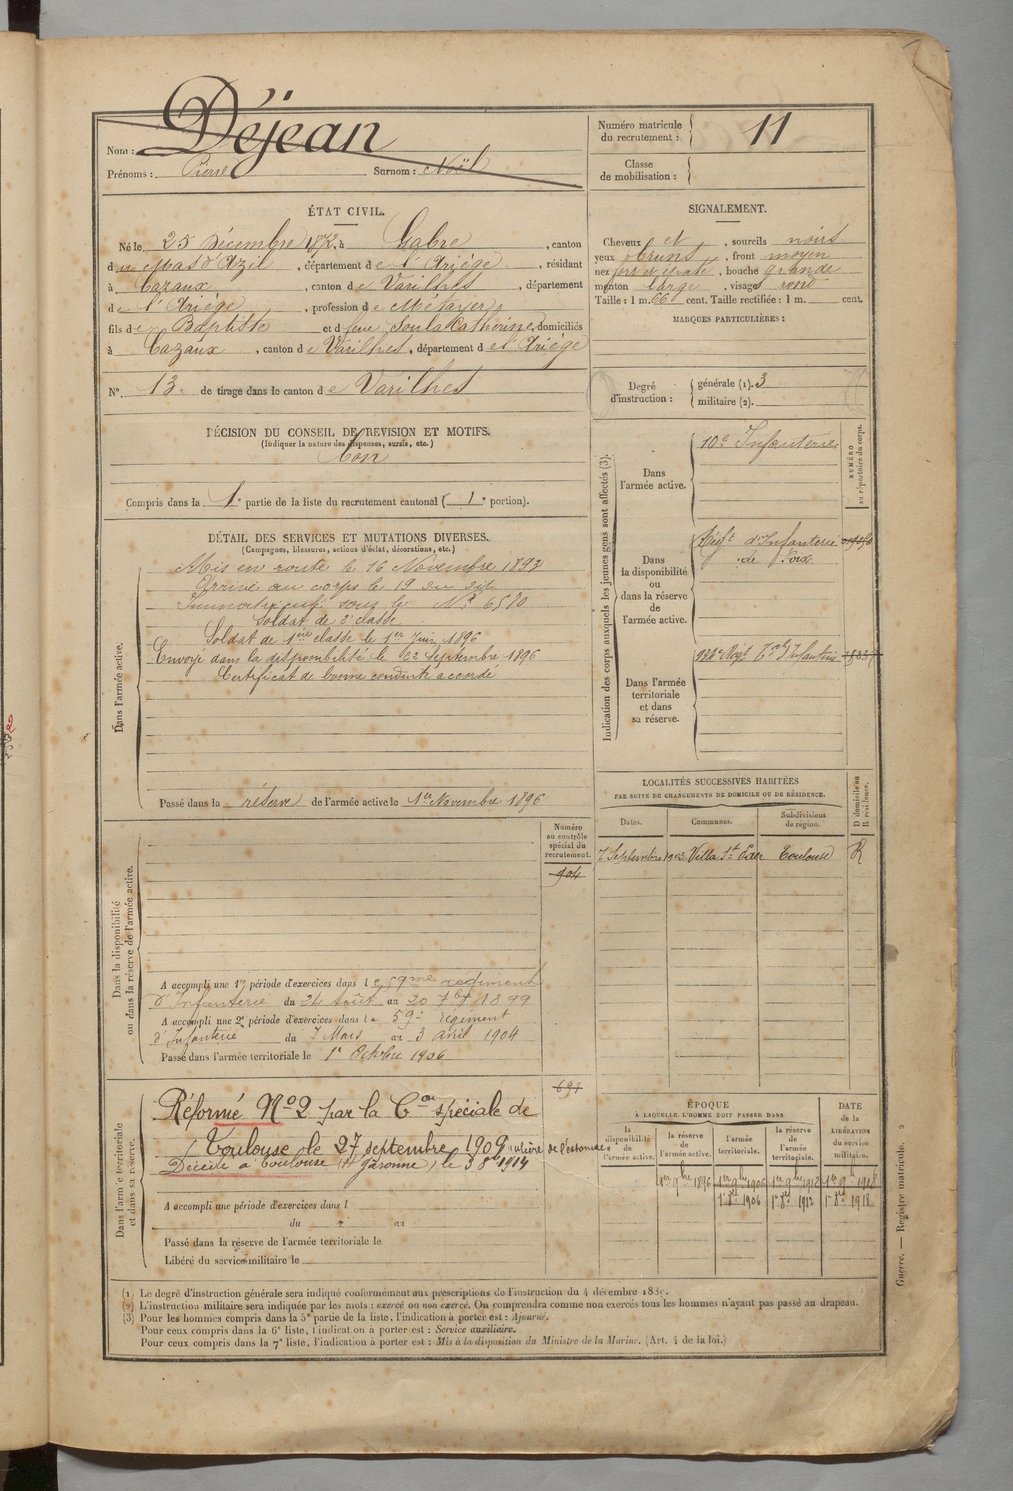 Nom : Déjean
Prénoms : Pierre Surnom : Noël
Numéro matricule
du recrutement : 11
Classe
de mobilisation :
ÉTAT CIVIL.
Né le 25 Décembre 1872, à Gabre, canton
du Mas d'Azil, département de l'Ariège, résidant
à Cazaux, canton de Varilhes, département
de l'Ariège, profession de Métayer
fils de Baptiste et de feue Soula Catherine, domiciliés
à Cazaux, canton de Varilhes, département de l'Ariège
N° 13 de tirage dans le canton de Varilhes
SIGNALEMENT.
Cheveux et, sourcils noirs
yeux bruns, front moyen
nez gros et épaté, bouche grande
menton large, visage rond
Taille : 1 m. 66 cent. Taille rectifiée : 1 m. cent.
MARQUES PARTICULIÈRES :
Degré
d'instruction :
générale (1). 3
militaire (2).
DÉCISION DU CONSEIL DE REVISION ET MOTIFS.
(Indiquer la nature des dispenses, sursis, etc.)
bon
Compris dans la 1e partie de la liste du recrutement cantonal (1e portion).
DÉTAIL DES SERVICES ET MUTATIONS DIVERSES.
(Campagnes, blessures, actions d'éclat, décorations, etc.)
Dans l'armée active.
Mis en route le 16 Novembre 1893
Arrivé au corps le 19 du dit
Immatriculé sous le N° 6580
Soldat de 2e classe
Soldat de 1ère classe le 1er Juin 1896
Envoyé dans la disponibilité le 22 Septembre 1896
Certificat de bonne conduite accordé
Passé dans la réserve de l'armée active le 1er Novembre 1896
Indication des corps auxquels les jeunes gens sont affectés (3).
NUMÉRO
au répertoire du corps.
Dans
l'armée active.
10e Infanterie
Dans
la disponibilité
ou
dans la réserve
de
l'armée active.
Régt d'Infanterie
de Foix
Dans l'armée
territoriale
et dans
sa réserve.
LOCALITÉS SUCCESSIVES HABITÉES
PAR SUITE DE CHANGEMENTS DE DOMICILE OU DE RÉSIDENCE.
Dates. Communes. Subdivisions
de région. D domicile ou
R résidence.
7 Septembre 1903 Toulouse R
Dans la disponibilité
ou dans la réserve de l'armée active.
Numéro
au contrôle
spécial du
recrutement.
904
A accompli une 1re période d'exercices dans le 59me régiment
d'Infanterie du 24 Août au 20 7bre 1899
A accompli une 2e période d'exercices dans le 59e régiment
d'Infanterie du 7 Mars au 3 avril 1904
Passé dans l'armée territoriale le 1er Octobre 1906
Dans l'armée territoriale
et dans sa réserve.
691
Réformé N° 2 par la Con spéciale de
Toulouse le 27 septembre 1909 ulcère de l'estomac
Décédé à Toulouse (Hte Garonne) le 3 8bre 1914
A accompli une période d'exercices dans l
du au
Passé dans la réserve de l'armée territoriale le
Libéré du service militaire le
ÉPOQUE
À LAQUELLE L'HOMME DOIT PASSER DANS
DATE
de la
LIBÉRATION
du service
militaire.
la
disponibilité
de
l'armée active.
la réserve
de
l'armée active.
l'armée
territoriale.
la réserve
de
l'armée
territoriale.
1er 9bre 1896 1er 9bre 1906 1er 9bre 1912 1er 9bre 1918
1er 8bre 1906 1er 8bre 1912 1er 8bre 1918
Guerre. — Registre matricule. 2
(1) Le degré d'instruction générale sera indiqué conformément aux prescriptions de l'instruction du 4 décembre 1889.
(2) L'instruction militaire sera indiquée par les mots : exercé ou non exercé. On comprendra comme non exercés tous les hommes n'ayant pas passé au drapeau.
(3) Pour les hommes compris dans la 5e partie de la liste, l'indication à porter est : Ajourné.
Pour ceux compris dans la 6e liste, l'indication à porter est : Service auxiliaire.
Pour ceux compris dans la 7e liste, l'indication à porter est : Mis à la disposition du Ministre de la Marine. (Art. 4 de la loi.)